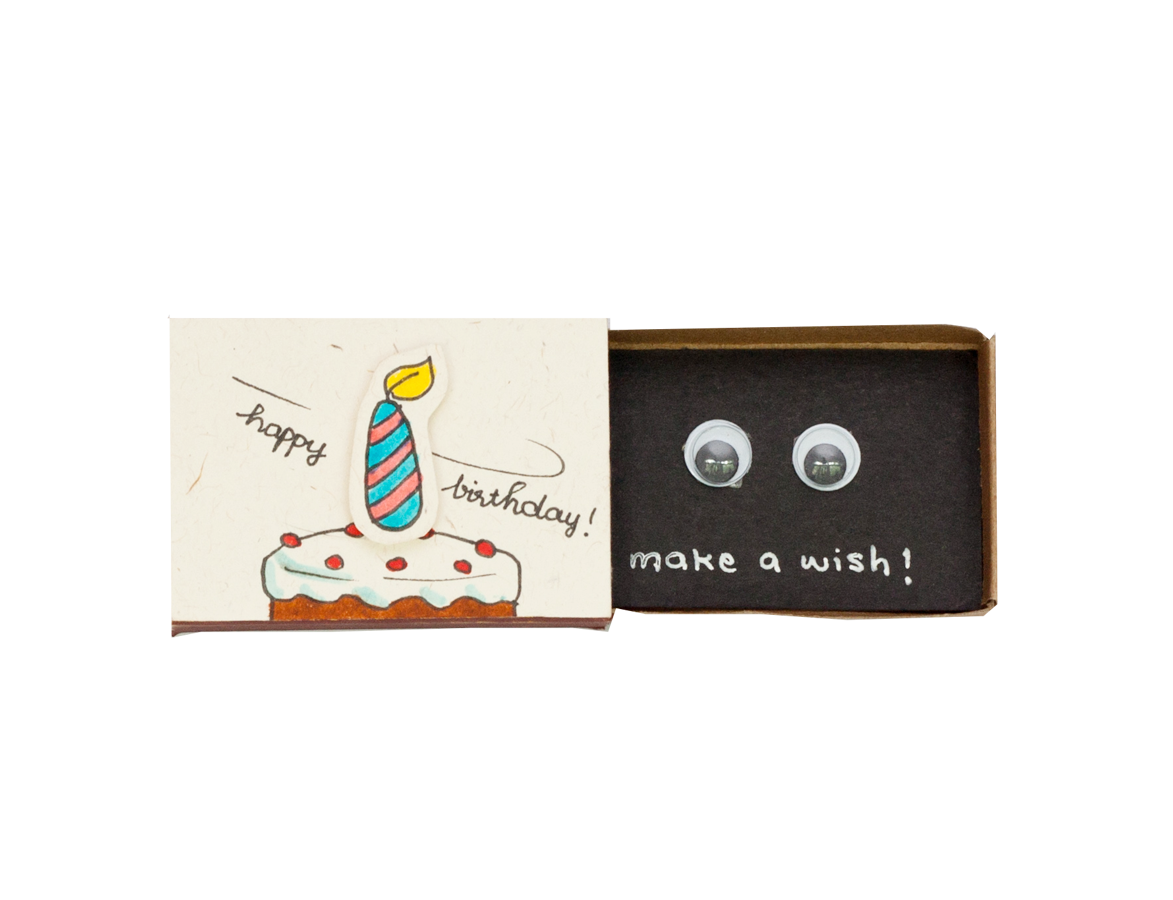 happy
birthday!
make a wish!